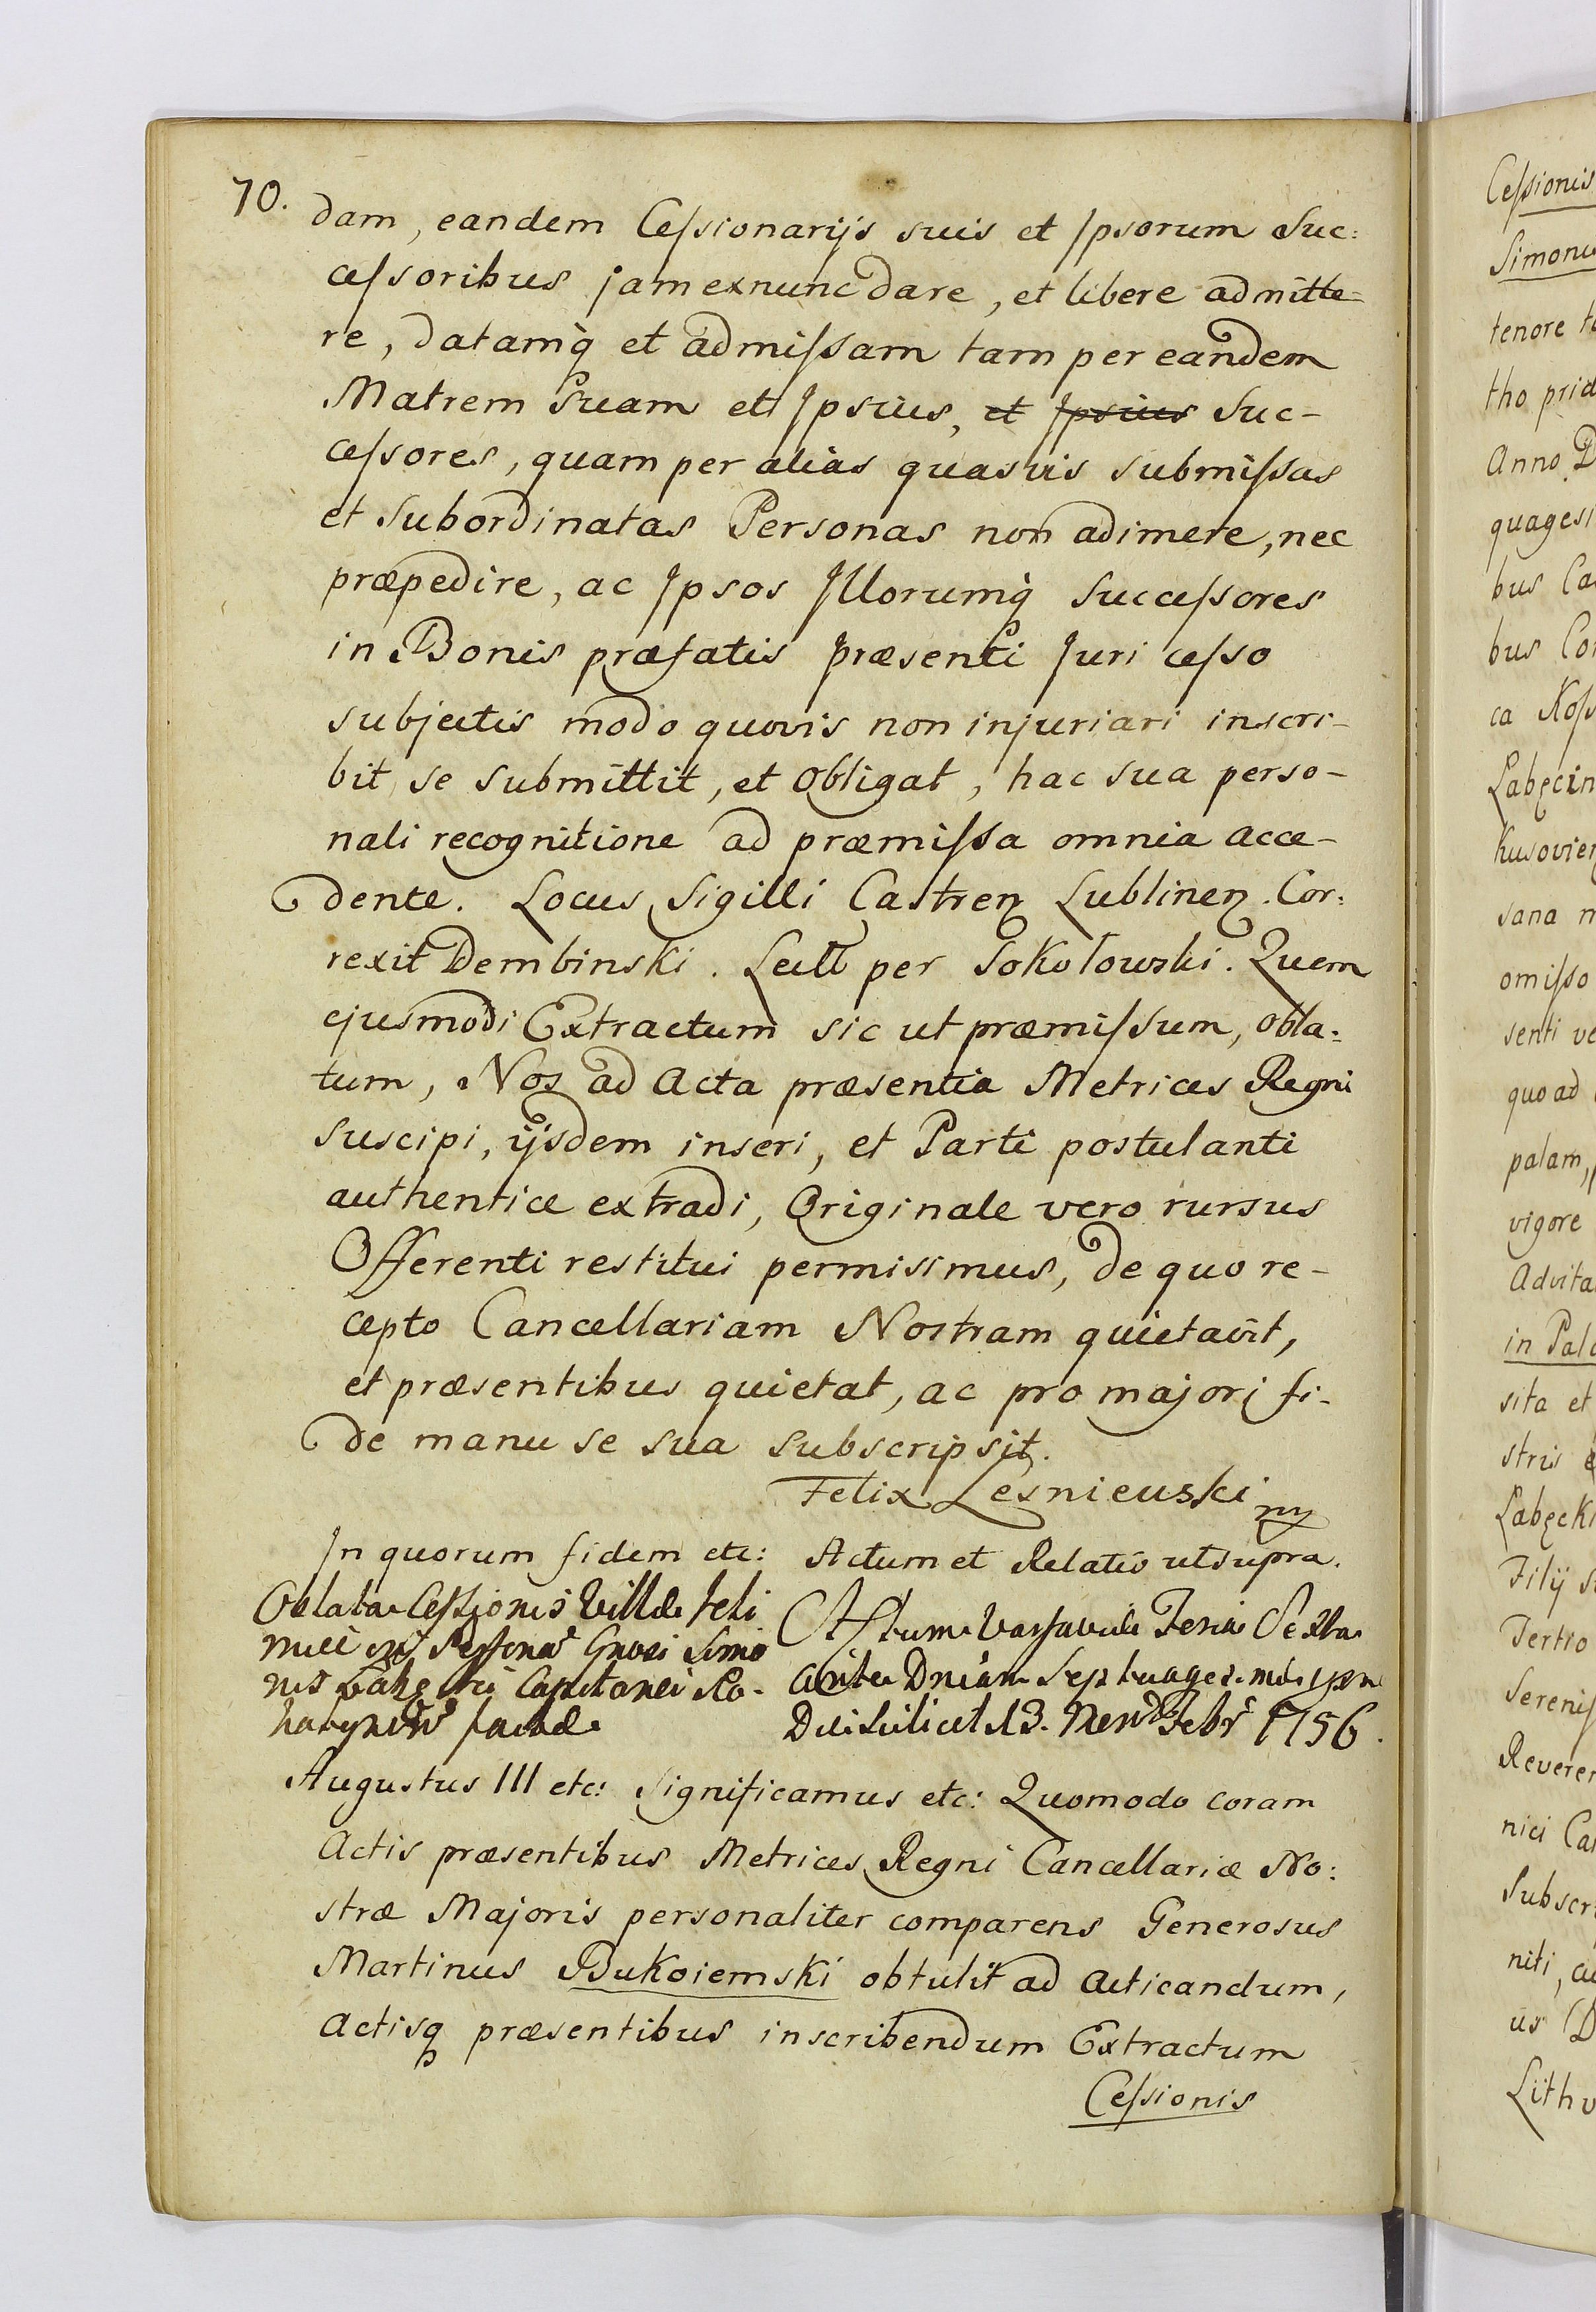 70.
dam, eandem Ceſsionarijs suis et Ipsorum Suc:
ceſsoribus jam exnunc dare, et libere admitte=
re, datamq̀ et admiſsam tam per eandem
Matrem Suam et Ipsius, et Ipsius Suc-
ceſsores, quam per alias quasvis submiſsas
et Subordinatas Personas non adimere, nec
præpedire, ac Ipsos Illorumq̀ Succeſsores
in Bonis præfatis præsenti Juri ceſso
subjectis modo quovis non injuriari inscri-
bit, se submittit, et obligat, hac sua perso-
nali recognitione ad præmiſsa omnia acce-
dente. Locus Sigilli Castren Lublinen. Cor:
rexit Dembinski. Lectt per Sokołowski. Quem
ejusmodi Extractum sic ut præmiſsum, obla:
tum, Nos ad Acta præsentia Metrices Regni
suscipi, ijsdem inseri, et Parti postulanti
authentice extradi, Originale vero rursus
Offerenti restitui permisimus, de quo re-
cepto Cancellariam Nostram quietavit,
et præsentibus quietat, ac pro majori fi-
de manu se sua subscripsit.
Felix Lesniewski mp
In quorum fidem etc: Actum et Relatio ut supra.
Oblata Ceſsionis Villæ
Gnosi Simo
nis Capitanei
factæ
Actum Varsaviæ Feria Sexta
ante Dnicam Septuagesimæ
Die scilicet 13. Mens Febr 1756.
Augustus III etc: Significamus etc: Quomodo coram
Actis præsentibus Metrices Regni Cancellariæ No:
stræ Majoris personaliter comparens Generosus
Martinus Bukoiemski obtulit ad acticandum,
actisq præsentibus inscribendum Extractum
Ceſsionis
Ceſsionis
Simonis
tenore
tho prid
Anno D
quagesi
bus Ca
bus Con
ca Koſs
Łabęcin
kusovien
sana m
omiſso
senti ve
quo ad
palam,
vigore
Advita
in Pala
sita et
stris
Łabęcki
Filij
Tertio
Sereniſ
Reveren
nici Ca
Subscri
niti,
us D
Lithv